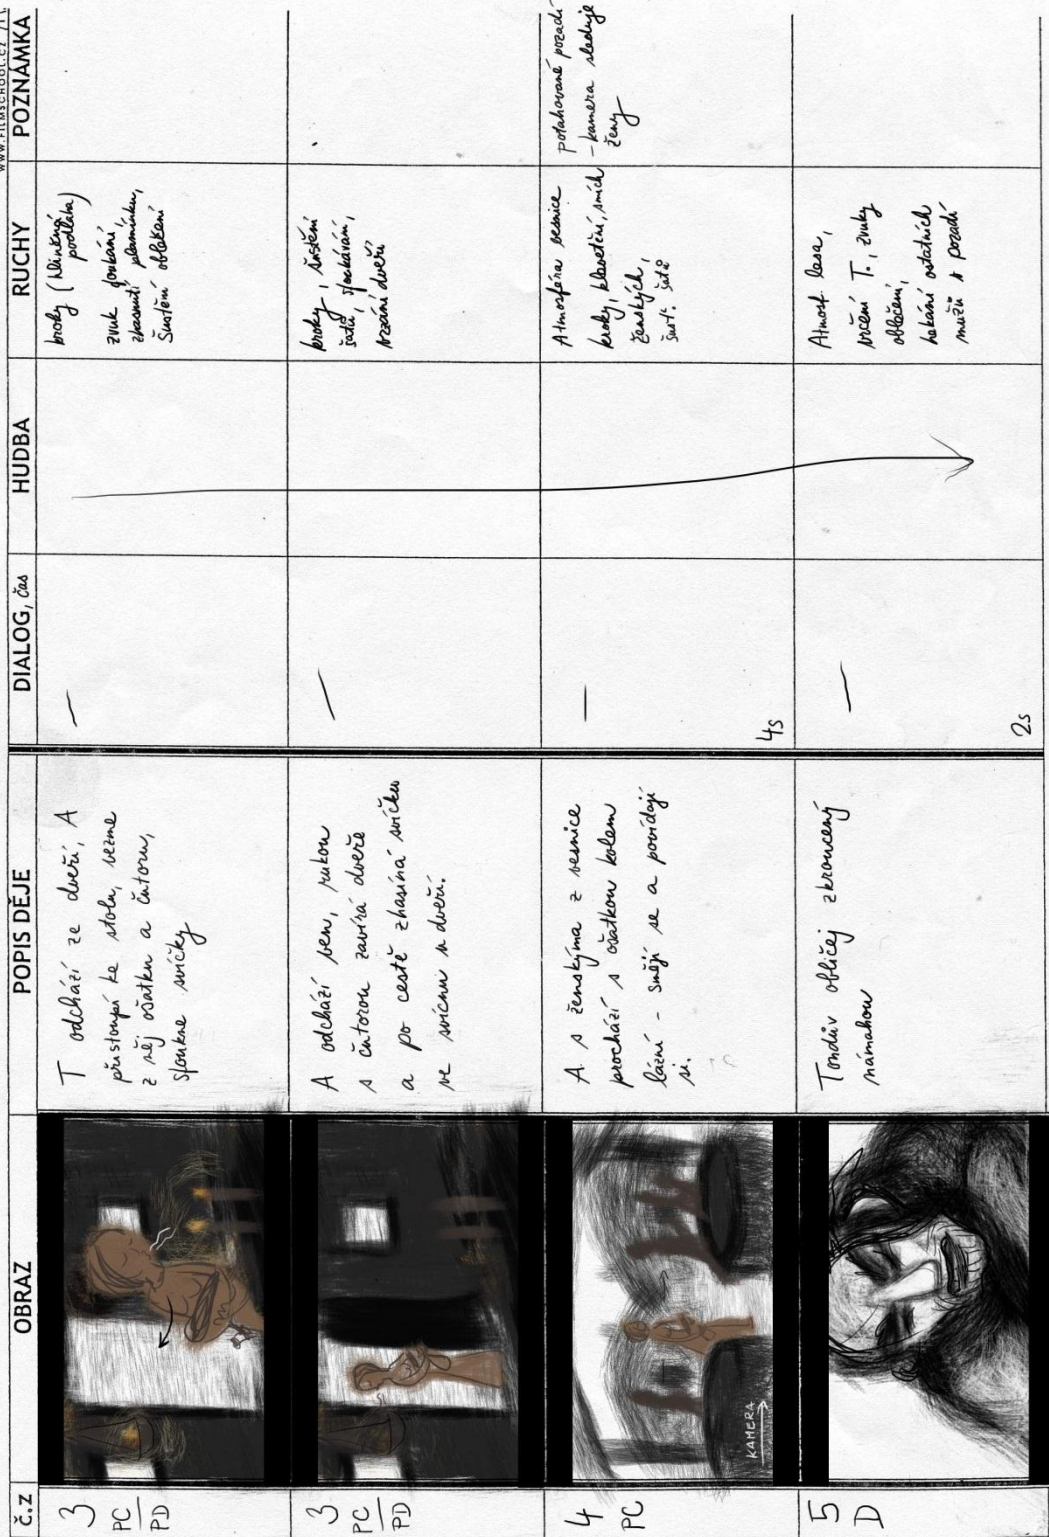 www.FILMSCHOOL.cz
č.z
OBRAZ
POPIS DĚJE
DIALOG, čas
HUDBA
RUCHY
POZNÁMKA
3
PC
PD
T odchází ze dveří, A
přistoupí ke stolu, vezme
z něj ošatku a čutoru,
sfoukne svíčky
—
kroky (hliněná
podlaha)
zvuk foukání,
zhasnutí plamínku,
šustění oblečení
3
PC
PD
A odchází ven, rukou
s čutorou zavírá dveře
a po cestě zhasíná svíčku
ve svícnu u dveří.
—
kroky, šustění
šatů, sfoukávání,
vrzání dveří
4
PC
KAMERA
A s ženskýma z vesnice
prochází s ošatkou kolem
lázní - smějí se a povídají
si.
—
4s
Atmosféra vesnice
kroky, klevetění, smích
ženských,
šust. šatů
potahované pozadí
- kamera sleduje
ženy
5
D
Tondův obličej zkroucený
námahou
—
2s
Atmosf. lesa,
vrčení T., zvuky
oblečení,
hekání ostatních
mužů v pozadí